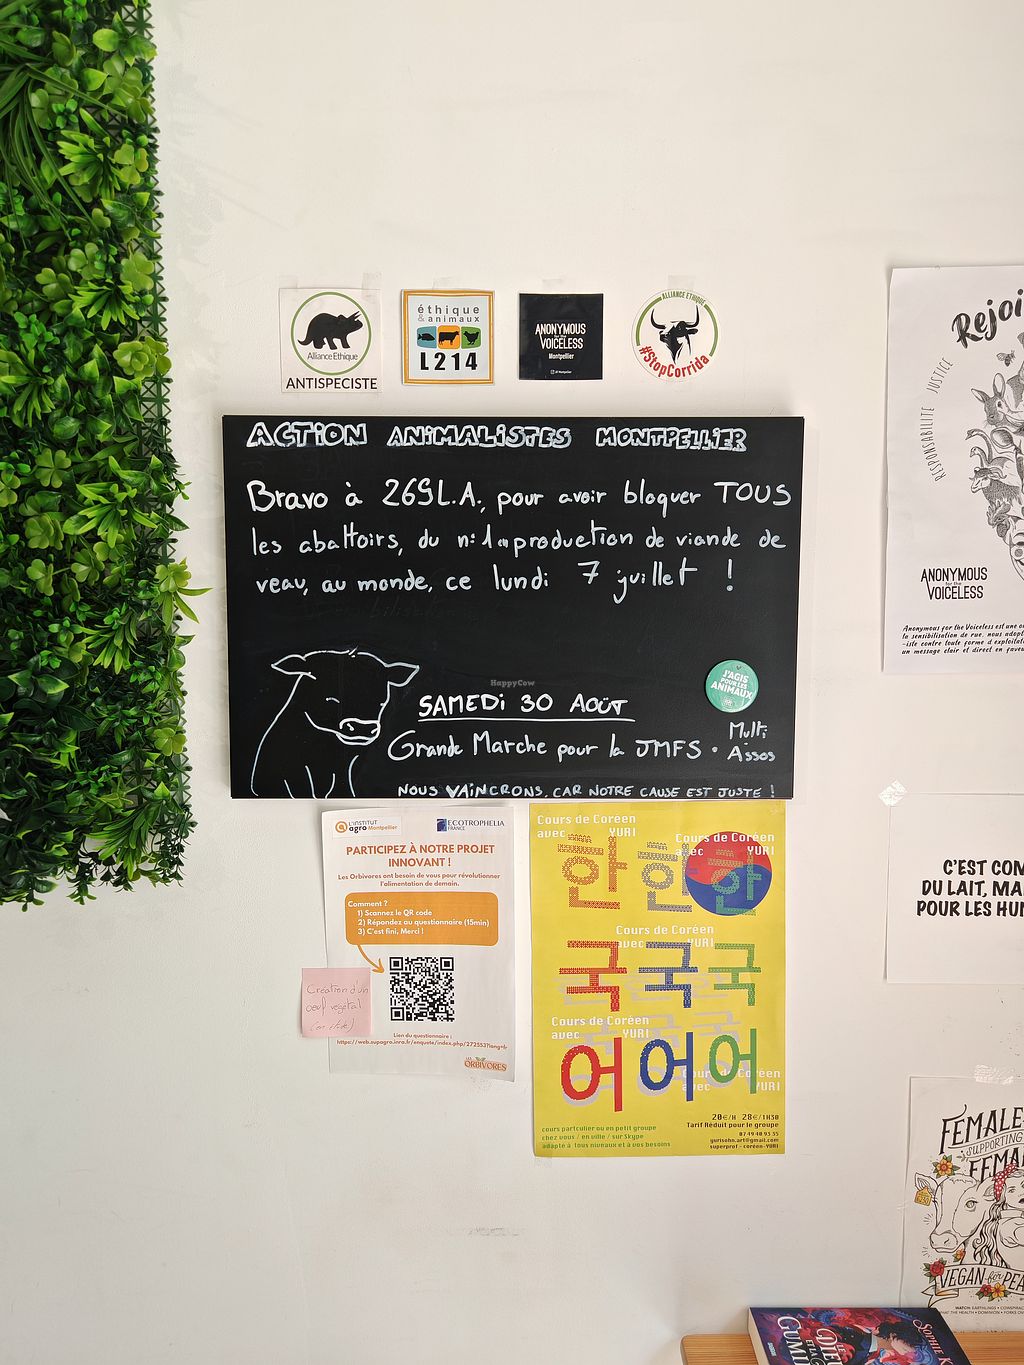 Alliance Ethique
ANTISPECISTE
éthique
& animaux
L214
ANONYMOUS
for the
VOICELESS
Montpellier
ALLIANCE ETHIQUE
#StopCorrida
ACTION ANIMALISTES MONTPELLIER
Bravo à 269L.A., pour avoir bloquer TOUS
les abattoirs, du n°1 en production de viande de
veau, au monde, ce lundi 7 juillet !
HappyCow
J'AGIS
POUR LES
ANIMAUX
SAMEDI 30 AOÛT
Grande Marche pour la JMFS • Multi
Assos
NOUS VAINCRONS, CAR NOTRE CAUSE EST JUSTE !
L'INSTITUT
agro Montpellier
ECOTROPHELIA
FRANCE
PARTICIPEZ À NOTRE PROJET
INNOVANT !
Les Orbivores ont besoin de vous pour révolutionner
l'alimentation de demain.
Comment ?
1) Scannez le QR code
2) Répondez au questionnaire (15min)
3) C'est fini, Merci !
Création d'un
oeuf végétal
Lien du questionnaire :
https://web.supagro.inra.fr/enquete/index.php/272353?lang=fr
LES
ORBIVORES
Cours de Coréen
avec YURI
Cours de Coréen
avec YURI
한 한 한
Cours de Coréen
avec YURI
국 국 국
Cours de Coréen
avec YURI
어 어 어
Cours de Coréen
avec YURI
20€/H 28€/1H30
Tarif Réduit pour le groupe
cours particulier ou en petit groupe
chez vous / en ville / sur Skype
adapté à tous niveaux et à vos besoins
07 49 40 93 35
yurisohn.art@gmail.com
superprof - coréen-YURI
Rejoi
RESPONSABILITÉ JUSTICE
ANONYMOUS
for the
VOICELESS
Anonymous for the Voiceless est une o
la sensibilisation de rue. nous adopt
-iste contre toute forme d'exploitati
un message clair et direct en faveu
C'EST COM
DU LAIT, MA
POUR LES HU
FEMALE
SUPPORTING
FEMA
VEGAN for PEA
WATCH: EARTHLINGS • COWSPIRAC
WHAT THE HEALTH • DOMINION • FORKS OV
GUMI
SOPHIE K